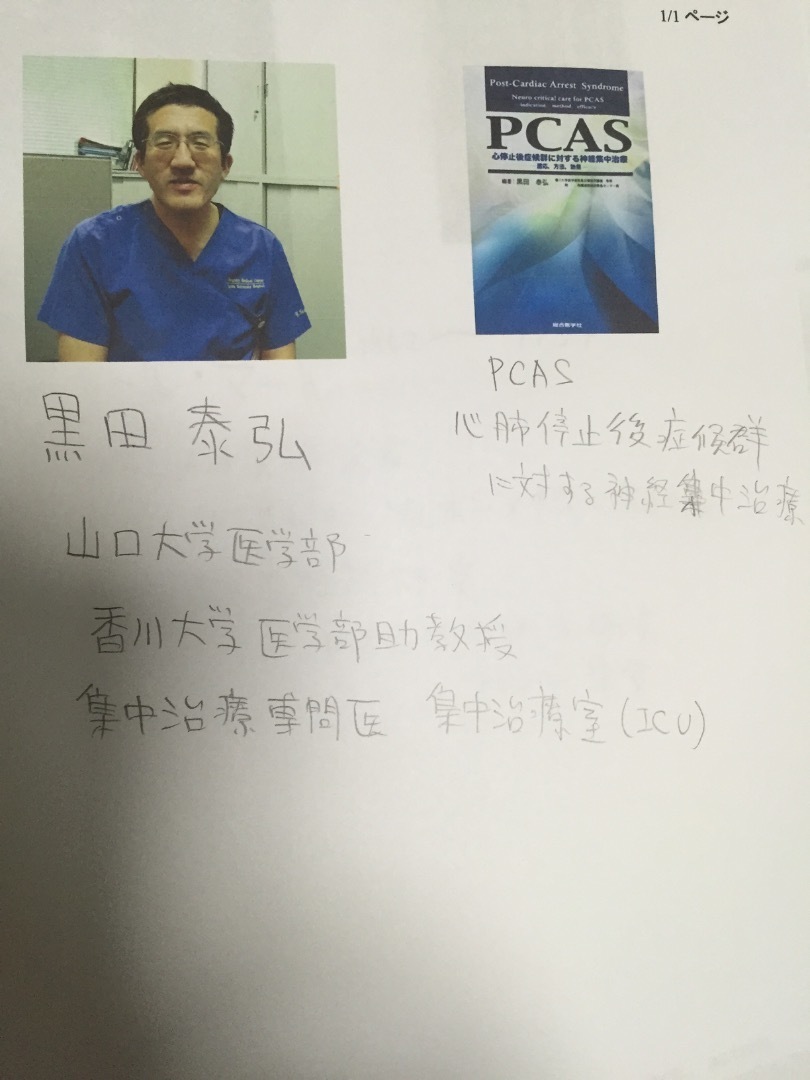 1/1 ページ
Post-Cardiac Arrest Syndrome
Neuro critical care for PCAS
indication method efficacy
PCAS
心停止後症候群に対する神経集中治療
適応、方法、効果
編著 黒田 泰弘
総合医学社
PCAS
心肺停止後症候群
に対する神経集中治療
黒田 泰弘
山口大学医学部
香川大学医学部助教授
集中治療専門医 集中治療室(ICU)